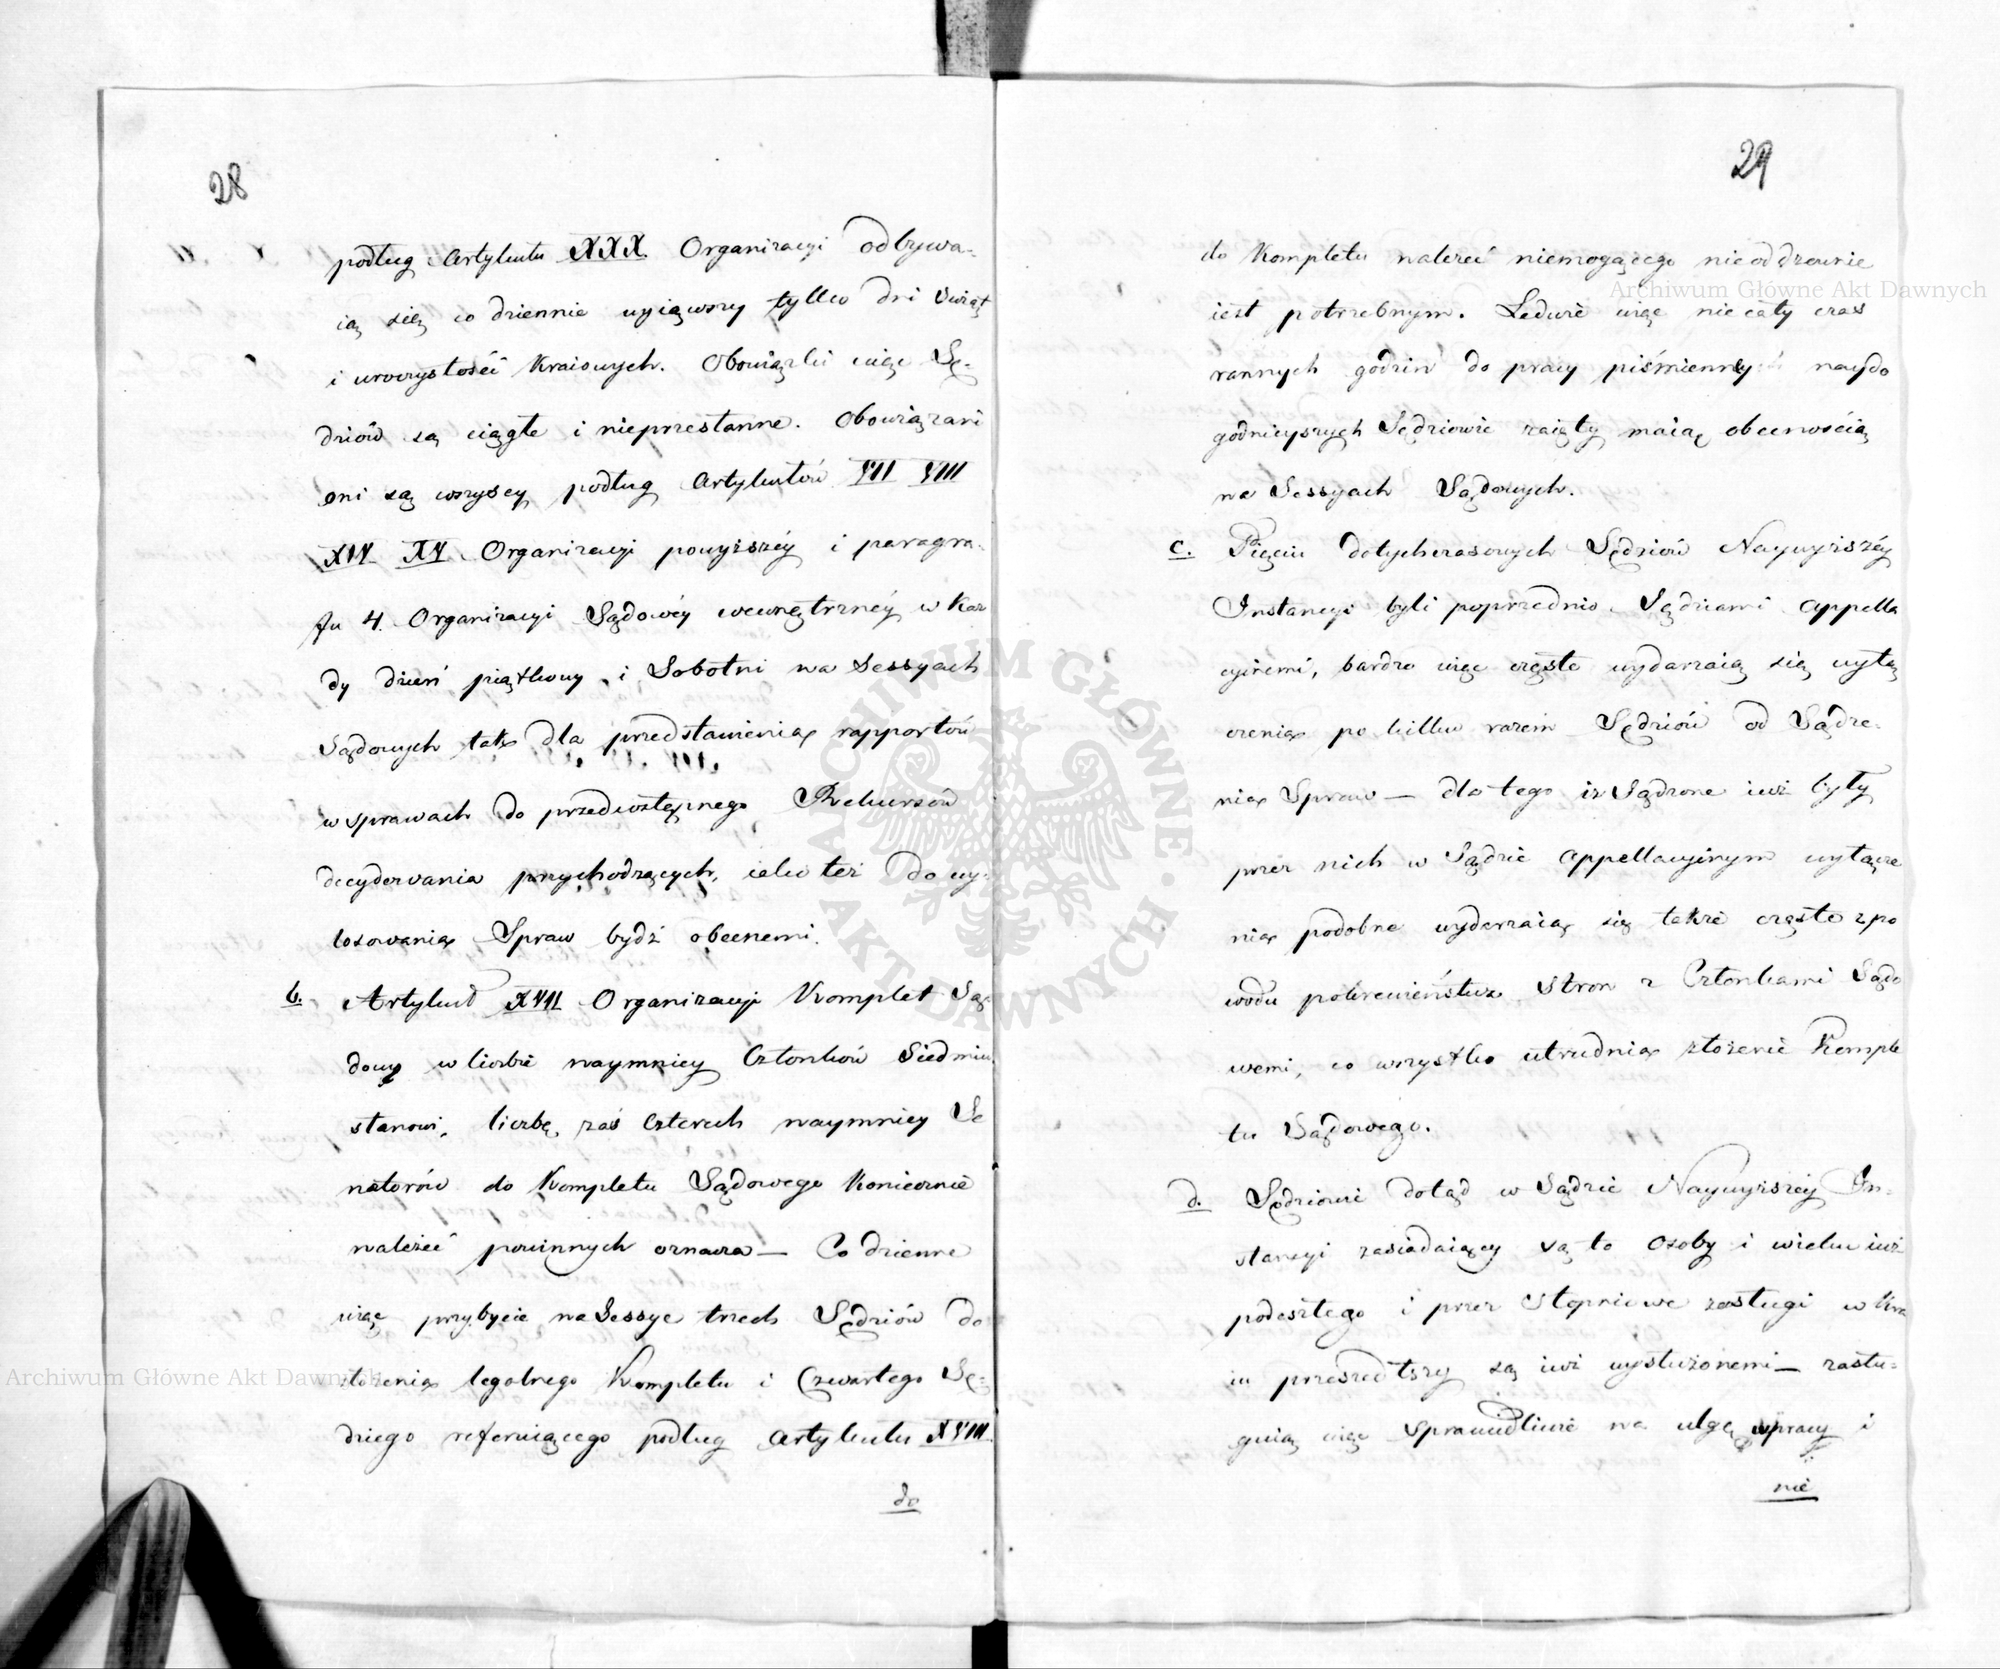 28
podług Artykułu XXX Organizacyi odbywa-
ią się co dziennie wyiąwszy tylko dni Swiąt
i uroczystości Kraiowych. Obowiązki więc Sę-
dziów są ciągłe i nieprzestanne. Obowiązani
oni są wszyscy podług Artykułów VII VIII
XIV XV Organizacyi powyższéy i paragra-
fu 4. Organizacyi Sądowéy wewnętrznéy w Każ
dy dzień piątkowy i Sobotni na Sessyach
Sądowych tak dla przedstawienia rapportów
w sprawach do przedwstępnego Rekursów
decydowania przychodzących, iako też do wy-
losowania Spraw bydź obecnemi.
b. Artykuł XVII Organizacyi Komplet Są-
dowy w liczbie naymniey Członków Siedmiu
stanowi, liczbę zaś Czterech naymniey Se
natorów do Kompletu Sądowego Koniecznie
należeć powinnych oznacza — Co dzienne
więc przybycie na Sessye trzech Sędziów do
złożenia legalnego Kompletu i Czwartego Sę-
dziego referuiącego podług Artykułu XVIII
do
29
do Kompletu należeć niemogącego nieodzownie
iest potrzebnym. Ledwie więc nie cały czas
rannych godzin do pracy piśmienney naydo
godnieyszych Sędziowie zaięty maią obecnością
na Sessyach Sądowych.
c. Pięciu dotychczasowych Sędziów Naywyższéy
Instancyi byli poprzednio Sędziami Appella
cyinemi, bardzo więc często wydarzaią się wyłą
czenia po kilku razem Sędziów od Sądze-
nia Spraw — dla tego iż Sądzone iuż były
przez nich w Sądzie Appellacyinym wyłącze
nia podobne wydarzaią się także często z po
wodu pokrewieństwa Stron z Członkami Sądo
wemi, co wszystko utrudnia złożenie Komple
tu Sądowego.
d. Sędziowie dotąd w Sądzie Naywyższéy In-
stancyi zasiadaiący są to Osoby i wieku iuż
podeszłego i przez Stopniowe zasługi w Kra
iu przeszedłszy są iuż wysłużonemi — zasłu-
guią więc Sprawiedliwie na ulgę w pracy i
nie
Archiwum Główne Akt Dawnych
Archiwum Główne Akt Dawnych
ARCHIWUM GŁÓWNE AKT DAWNYCH